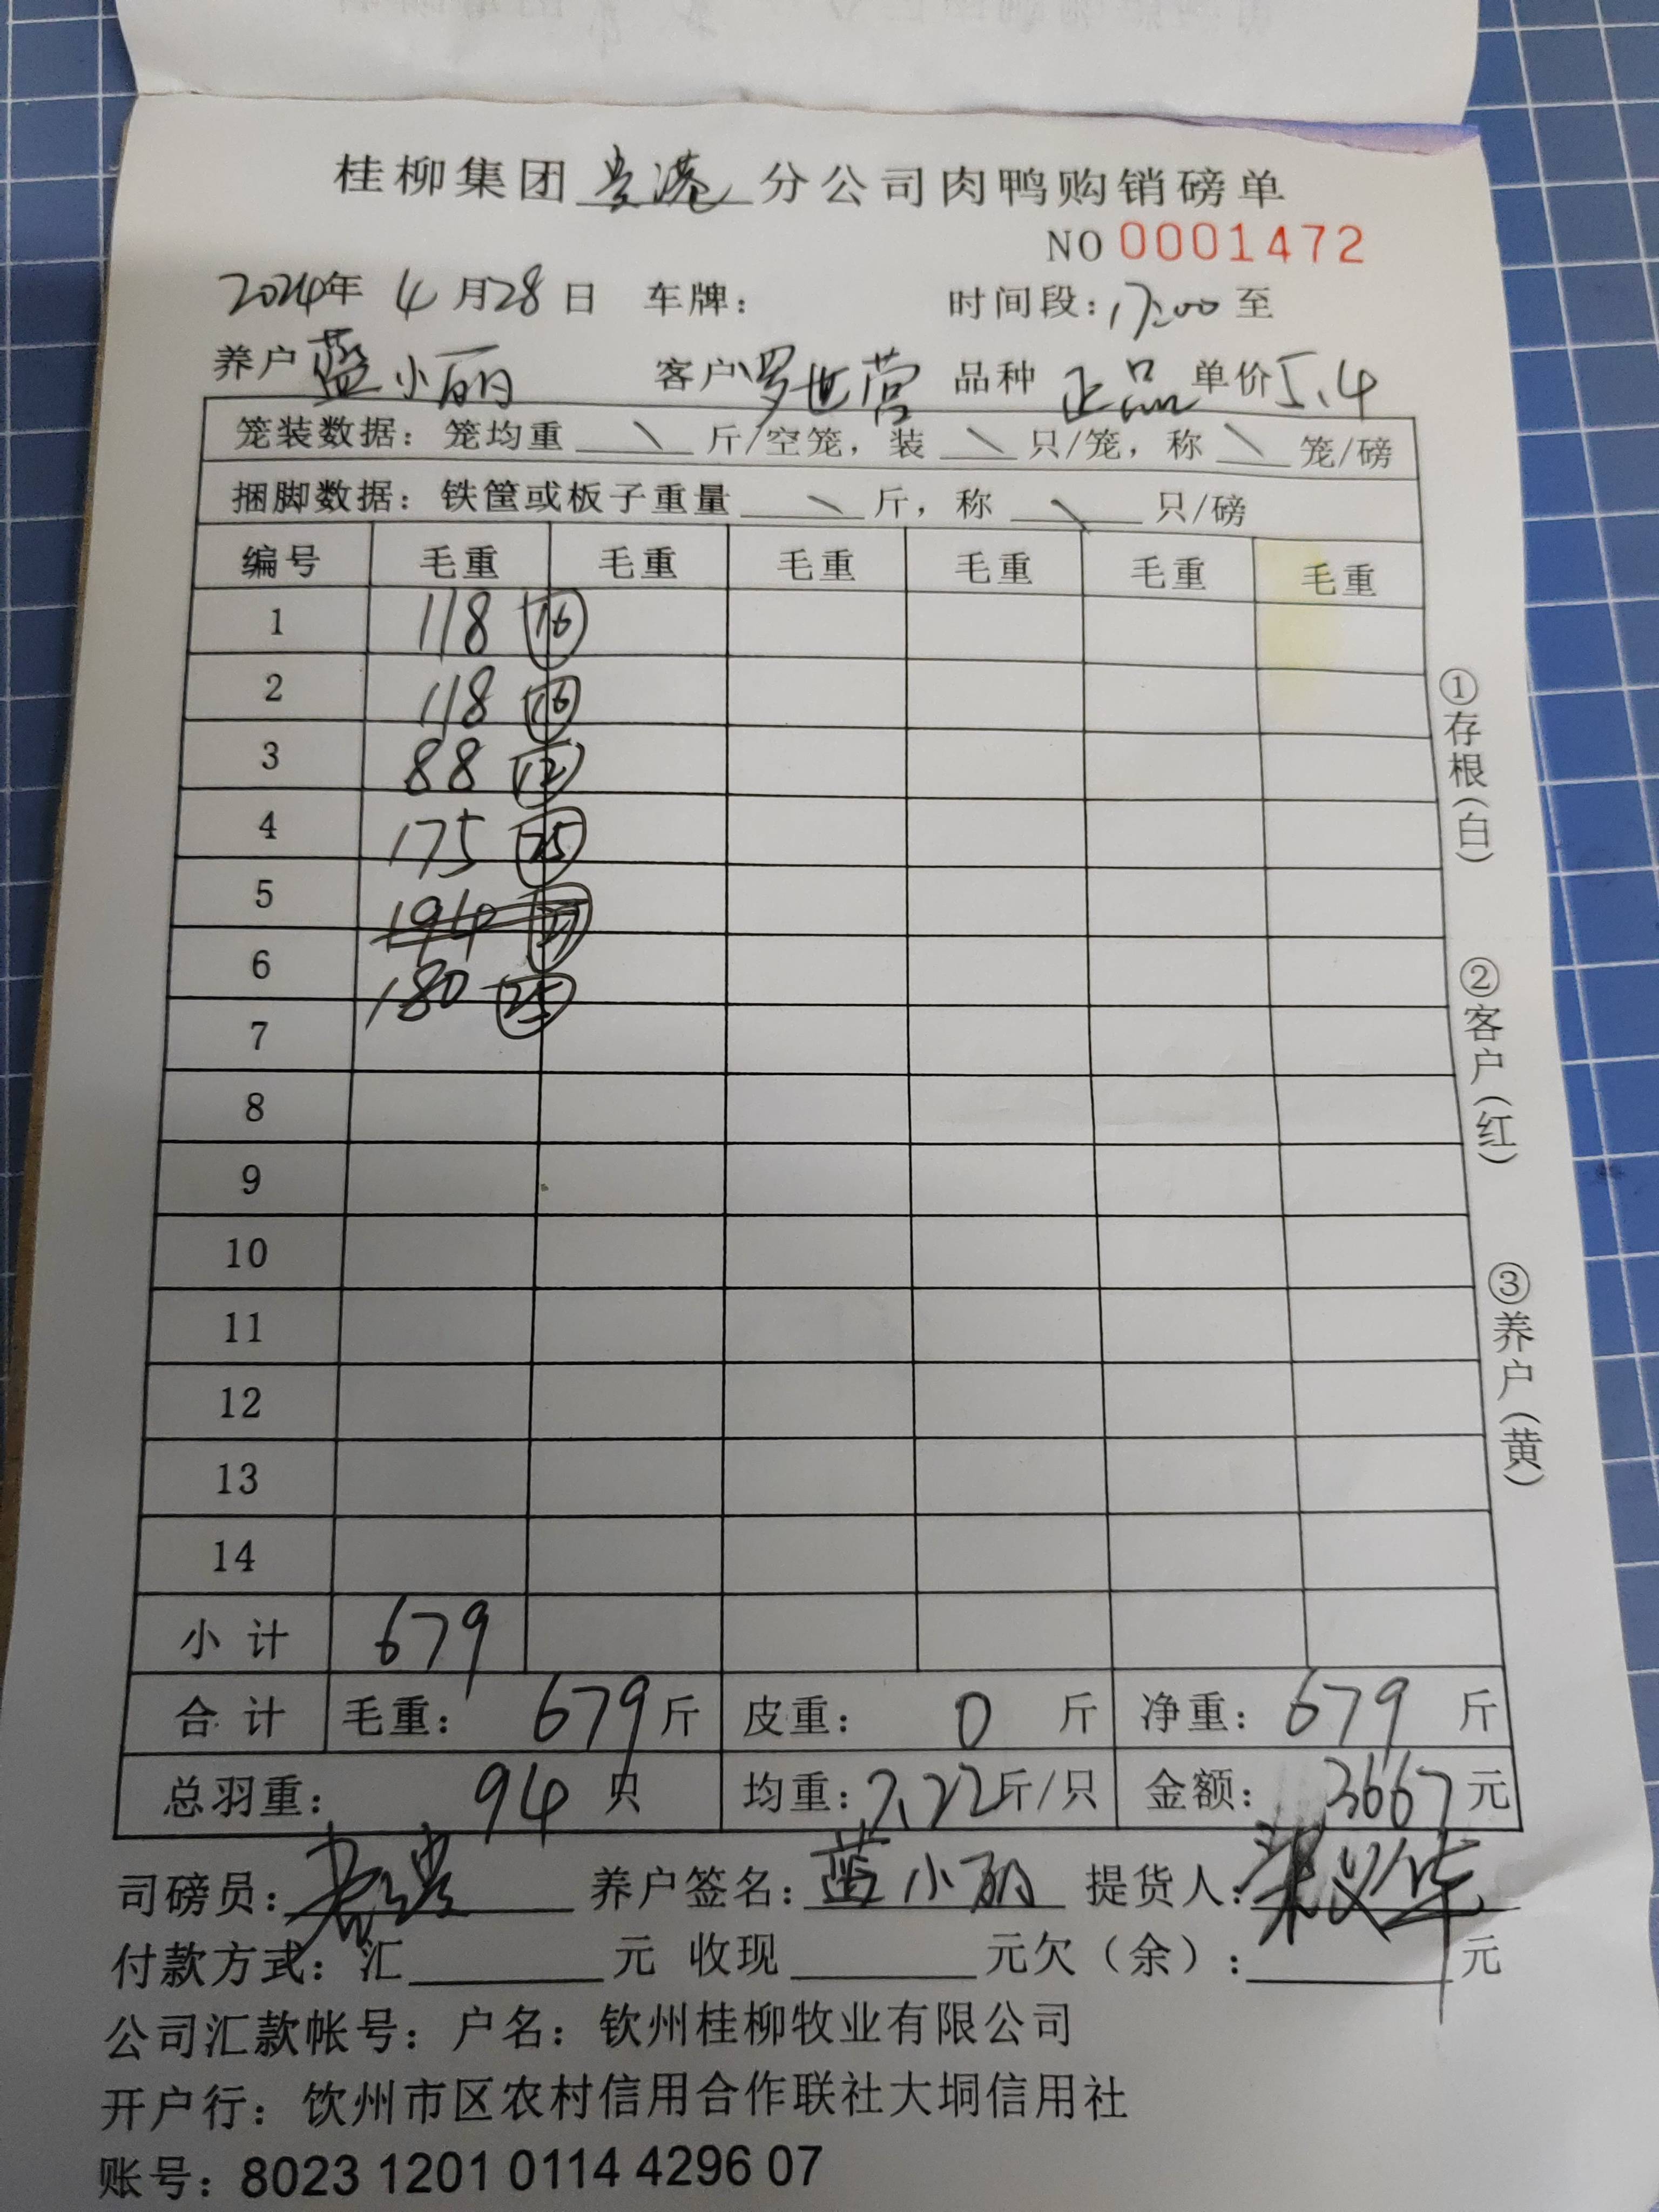 桂柳集团贵港分公司肉鸭购销磅单
NO 0001472
2024年 4月28日 车牌： 时间段：17:00 至
养户 蓝小丽 客户 罗世营 品种 正品 单价 5.4
笼装数据：笼均重 \ 斤/空笼，装 \ 只/笼，称 \ 笼/磅
捆脚数据：铁筐或板子重量 \ 斤，称 \ 只/磅
编号 毛重 毛重 毛重 毛重 毛重 毛重
1 118 16
2 118 16
3 88 12
4 175 25
5 194 27
6 180 25
7
8
9
10
11
12
13
14
小计 679
合计 毛重： 679 斤 皮重： 0 斤 净重： 679 斤
总羽重： 94 只 均重：7.22斤/只 金额： 3667 元
司磅员： 养户签名：蓝小丽 提货人：
付款方式：汇 元 收现 元欠（余）： 元
公司汇款帐号：户名：钦州桂柳牧业有限公司
开户行：钦州市区农村信用合作联社大垌信用社
账号：8023 1201 0114 4296 07
①存根（白）
②客户（红）
③养户（黄）